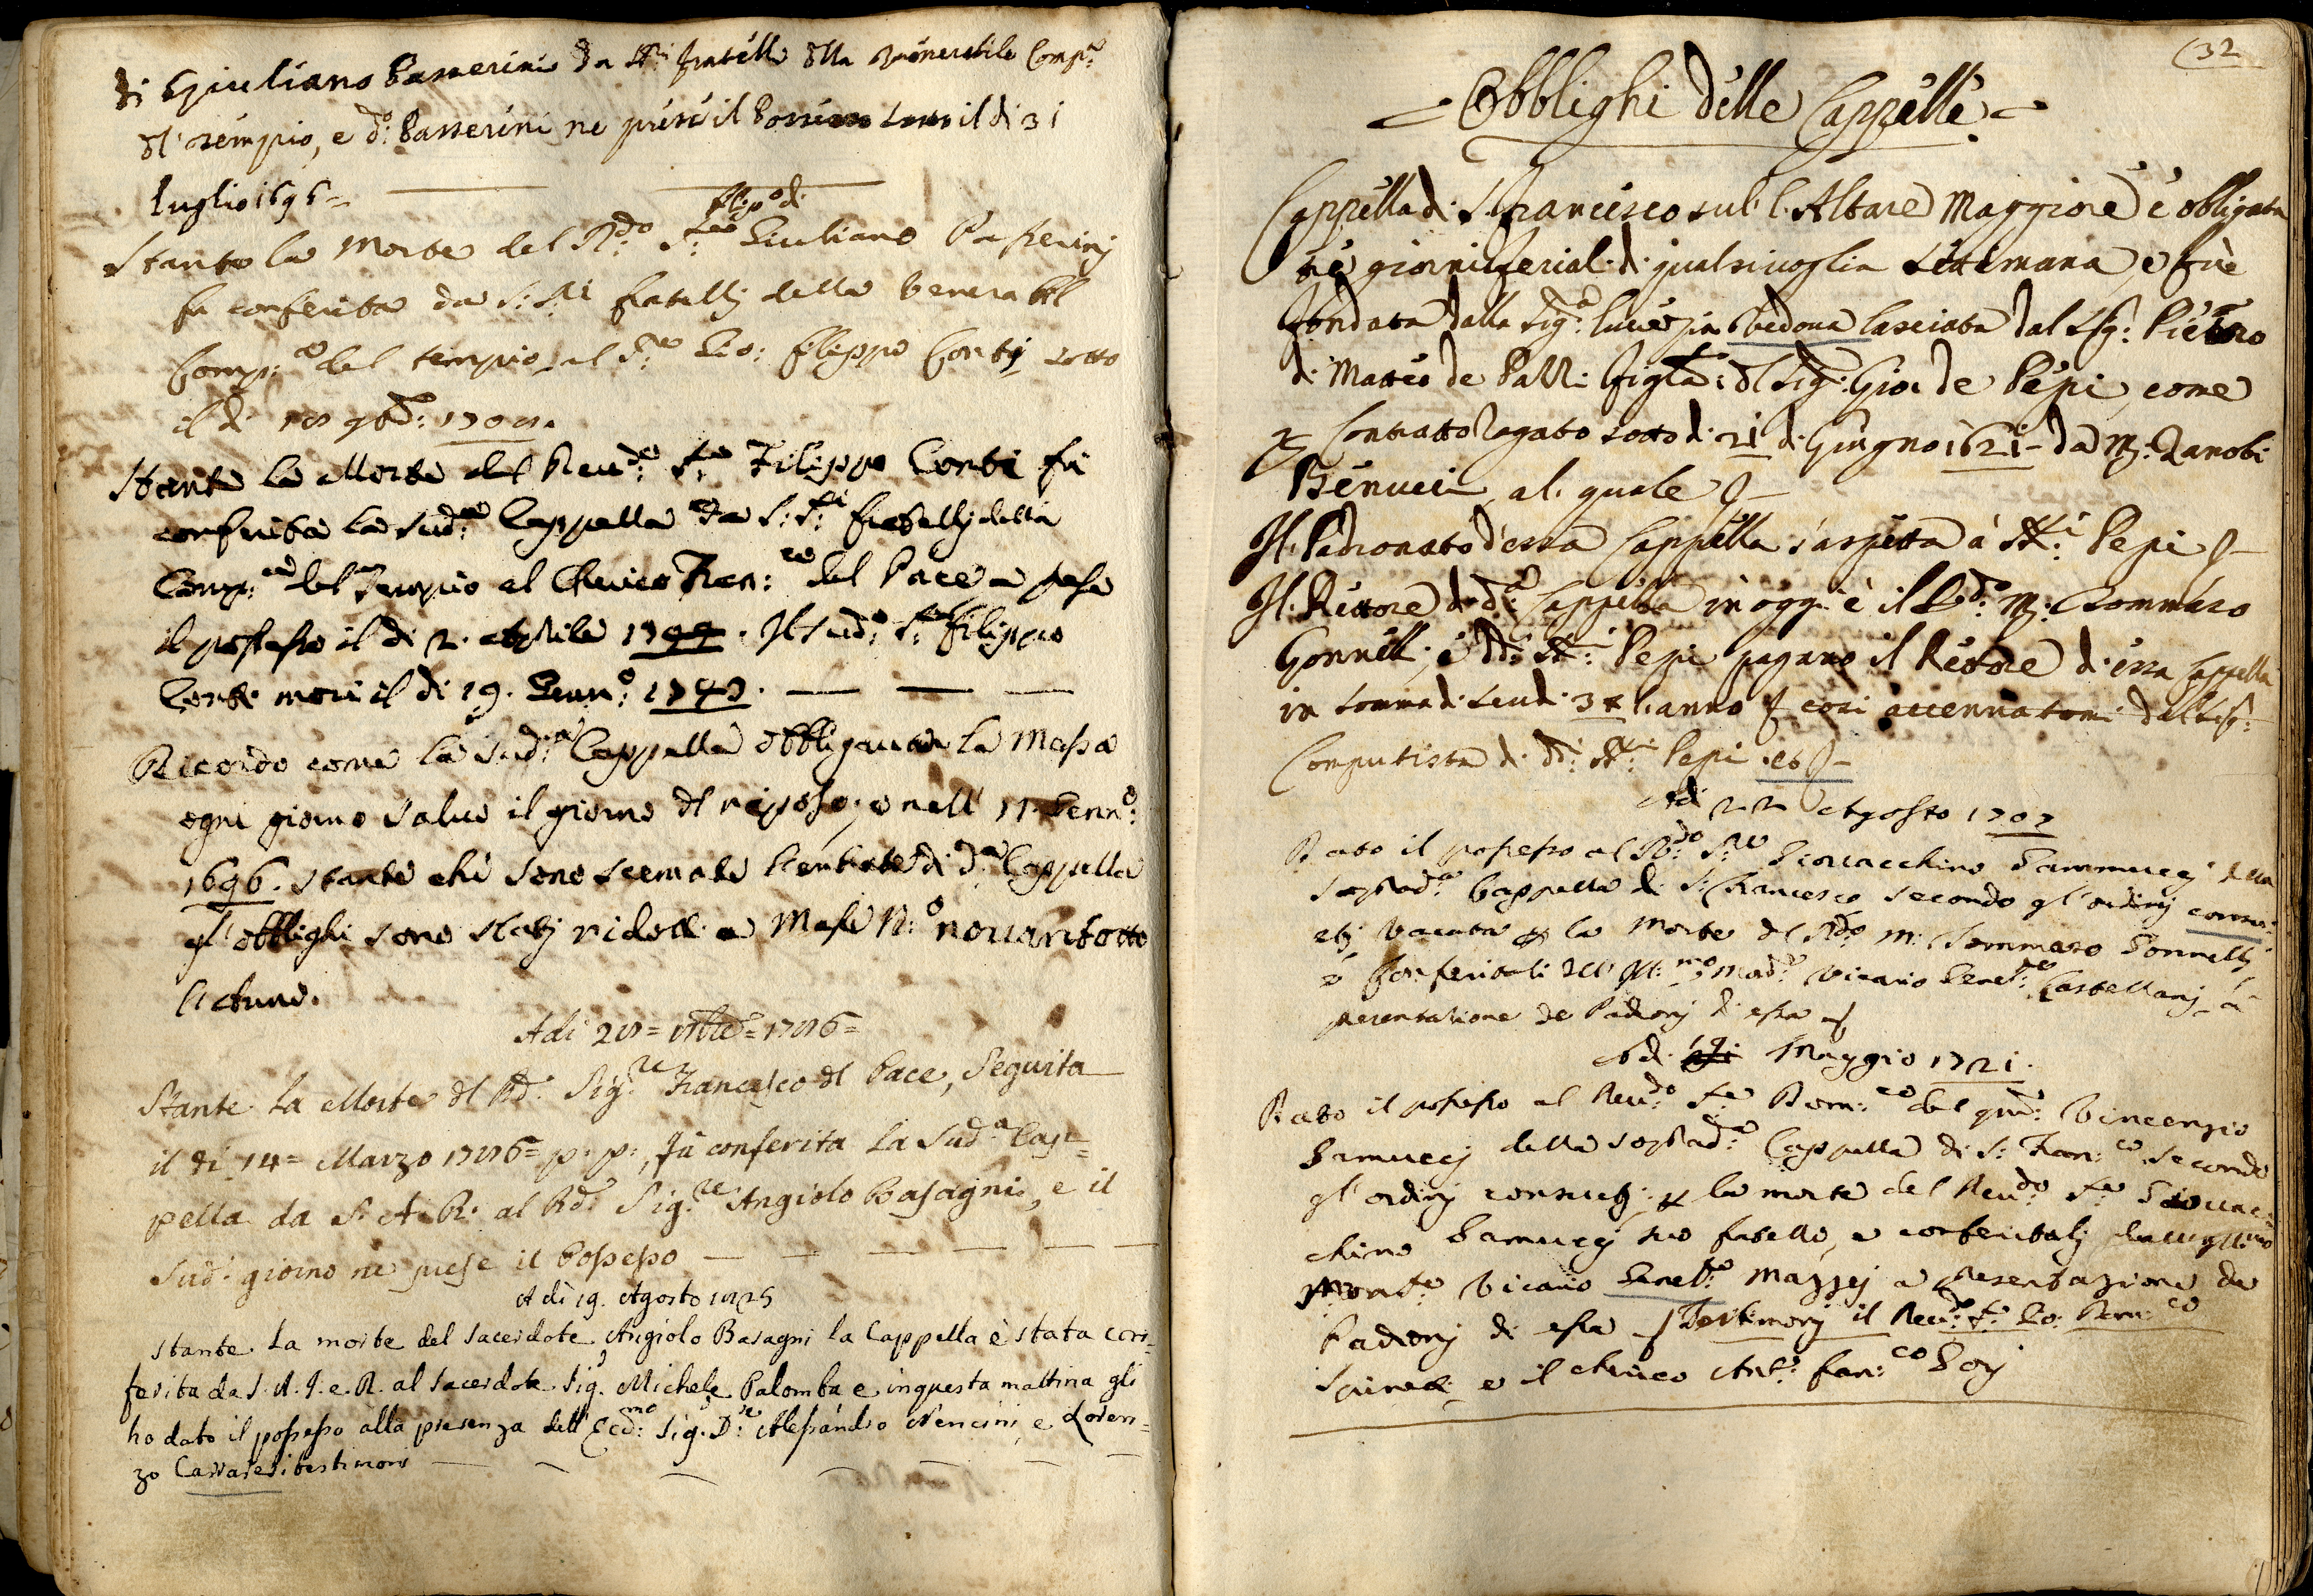 di Giuliano Passerini da SS:ri fratelli dlla Venerabile Comp:a
dl Tempio, e d:o Passerini ne prese il Possesso il di 31
luglio 1696 =
filip:o di
Stante la Morte del R:do S:re Giuliano Passerinj
fu conferita da S: S:ri fratellj della Venerabl
Comp:a del tempio al S:re Gio: filippo Contj sotto
il di
Stante la Morte del Reud:o S:re Filippo Conti fù
conferita la Sud:a Cappella da S: S:ri fratellj della
Comp:a del Tempio al Cherico Fran:co del Pace e prese
il possesso il di 2. Aprile 1744. Il Sud:o S:re filippo
Conti morì il di 19. Genn:o 1743.
Ricordo come la Sud:a Cappella obbligaua la Messa
ogni giorno salvo il giorno dl riposo, e nell' 11 Genn:o
1696. stante che sono scemate l'entrate di d:a Cappella
gl' obblighi sono statj ridotti a Messe N:o novantotto
l'Anno.
Adi
Stante la Morte dl Rd:o Sig:re Francesco dl Pace, Seguita
il di 14 = Marzo 1786 = p: p:, fù conferita la Sud:a Cap=
pella da S. A. R. al Rd:o Sig:re Angiolo Basagni, e il
Sud:o giorno ne prese il Possesso
A di 19. Agosto 1825
Stante la morte del Sacerdote Angiolo Basagni la Cappella è stata con=
ferita da S. A. I. e. R. al Sacerdote Sig. Michele Palomba e in questa mattina gli
ho dato il possesso alla presenza dell' Ecc:mo Sig. D:re Alessandro Nencini, e Loren=
zo Carraresi testimoni
32
= Obblighi delle Cappelle =
Cappella di S. Francesco sul l'Altare Maggiore è obligata
ne giorni feriali di qualsivoglia Settimana, e fuè
fondata dalla Sig:a Lucrezia Vedova lasciata dal Sig: Pietro
di Matteo de Pazzi figla: dl Sig: Gio: de Pepi, come
p Contratto Rogato sotto di 21 di Giugno 1621 - da M: Zanobi
Benucci al quale
Il Padronato d'essa Cappella s'aspetta a SS:ri Pepi
Il Rettore di d:a Cappella in oggi è il R:do M: Tommaso
Gonnelli, e dd:i SS:ri Pepi pagano il Rettore di essa Cappella
in somma di scudi 38 l'anno così accennatomi dal Sig:
Computista di dd:i SS:ri Pepi
Adi 22 Agosto 1707
Dato il possesso al R:do S:re Giovacchino Sammuccj della
soprad:a Cappella di S: Francesco secondo gl'ordinj consu=
etj vacata p la Morte dl Rdo M: Tommaso Gonnellj
e conferitali dll' Ill:mo Mons:re Vicario Genel:e Castellanj a
presentazione de Padronj di essa
Adi Maggio 1721.
Dato il possesso al Reu:do S:re Dom:co del qm: Vincenzio
Samuccj della soprad:a Cappella di S: Fran:co secondo
gl'ordinj consuetj p la morte del Reu:do S:re Giouac=
chino Samuccj suo fratello, e conferitalj dall Ill:mo
Mons:re Vicario Genel:e Mazzej a Presentazione de
Padronj di essa Testimonj il Reu:do S:re Gio: Dom:co
e il Cherico Ant:o Fran:co